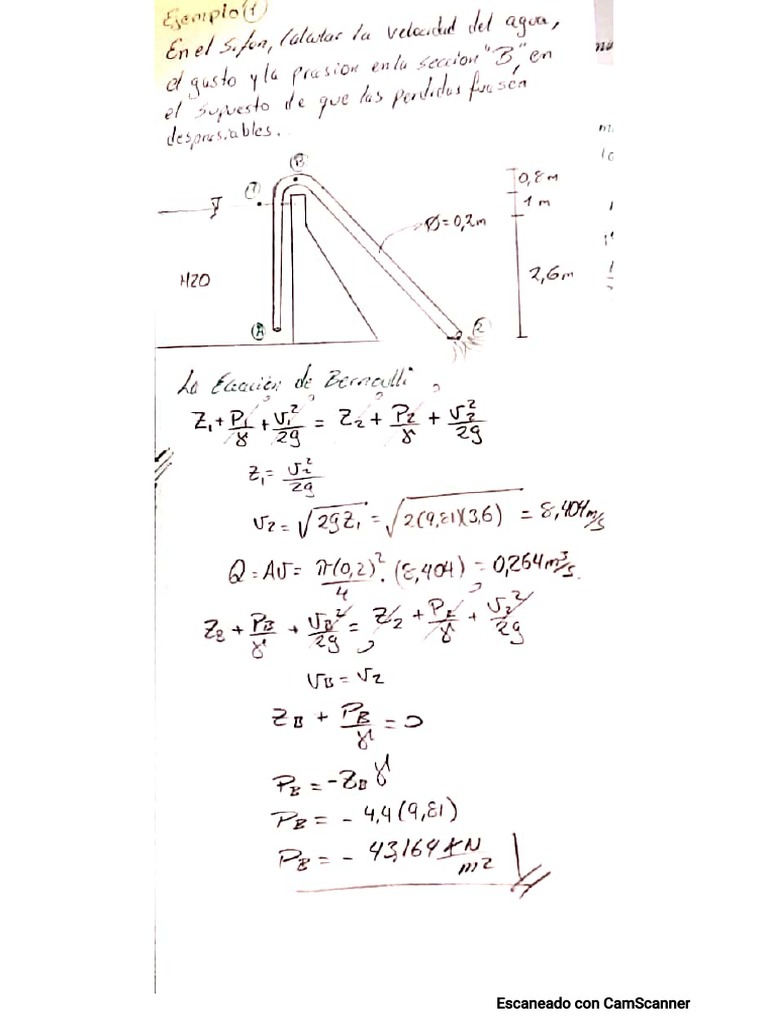 Ejemplo (1)
En el Sifon, Calcular la velocidad del agua,
el gasto y la presion en la seccion "B", en
el supuesto de que las perdidas fuesen
despresiables.
B
1
0,8m
1m
Ø=0,2m
H2O
2,6m
A
2
La Ecuación de Bernoulli
Z₁ + P₁/γ + V₁²/2g = Z₂ + P₂/γ + V₂²/2g
Z₁ = V₂²/2g
V₂ = √2gZ₁ = √2(9,81)(3,6) = 8,404 m/s
Q = AV = π(0,2)²/4 · (8,404) = 0,264 m³/s.
Z_B + P_B/γ + V_B²/2g = Z₂ + P₂/γ + V₂²/2g
V_B = V₂
Z_B + P_B/γ = 0
P_B = -Z_B γ
P_B = - 4,4(9,81)
P_B = - 43,164 KN/m²
Escaneado con CamScanner